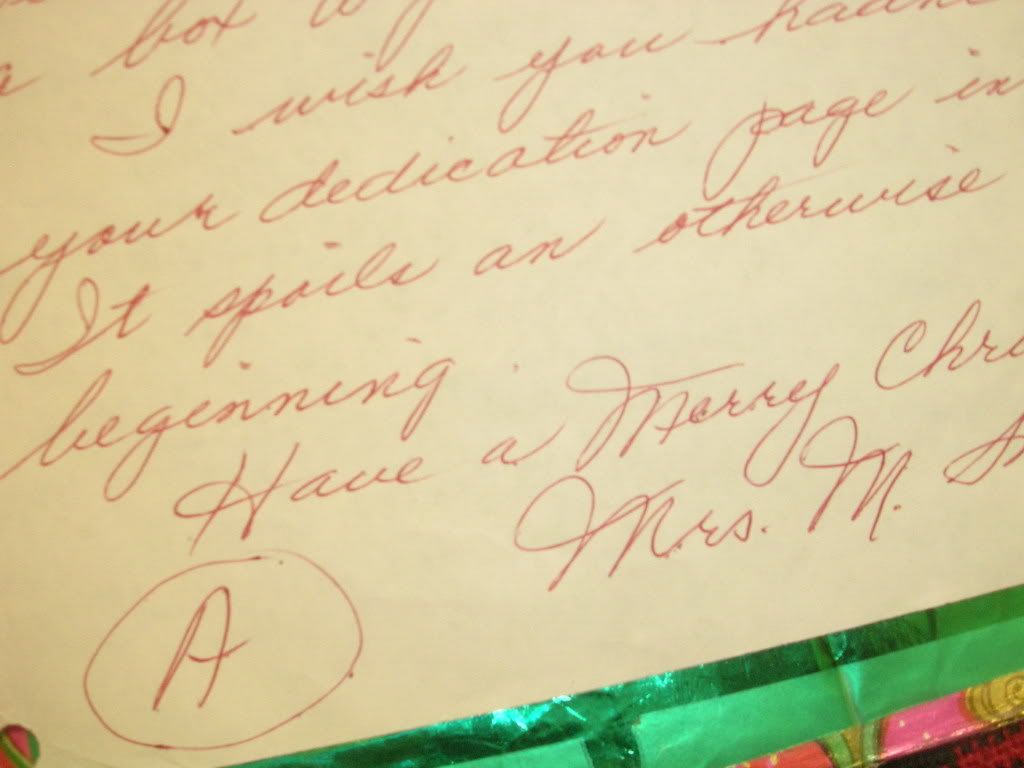 box
I wish you
your dedication page in
It spoils an otherwise
beginning.
Have a Merry
Mrs. M.
A